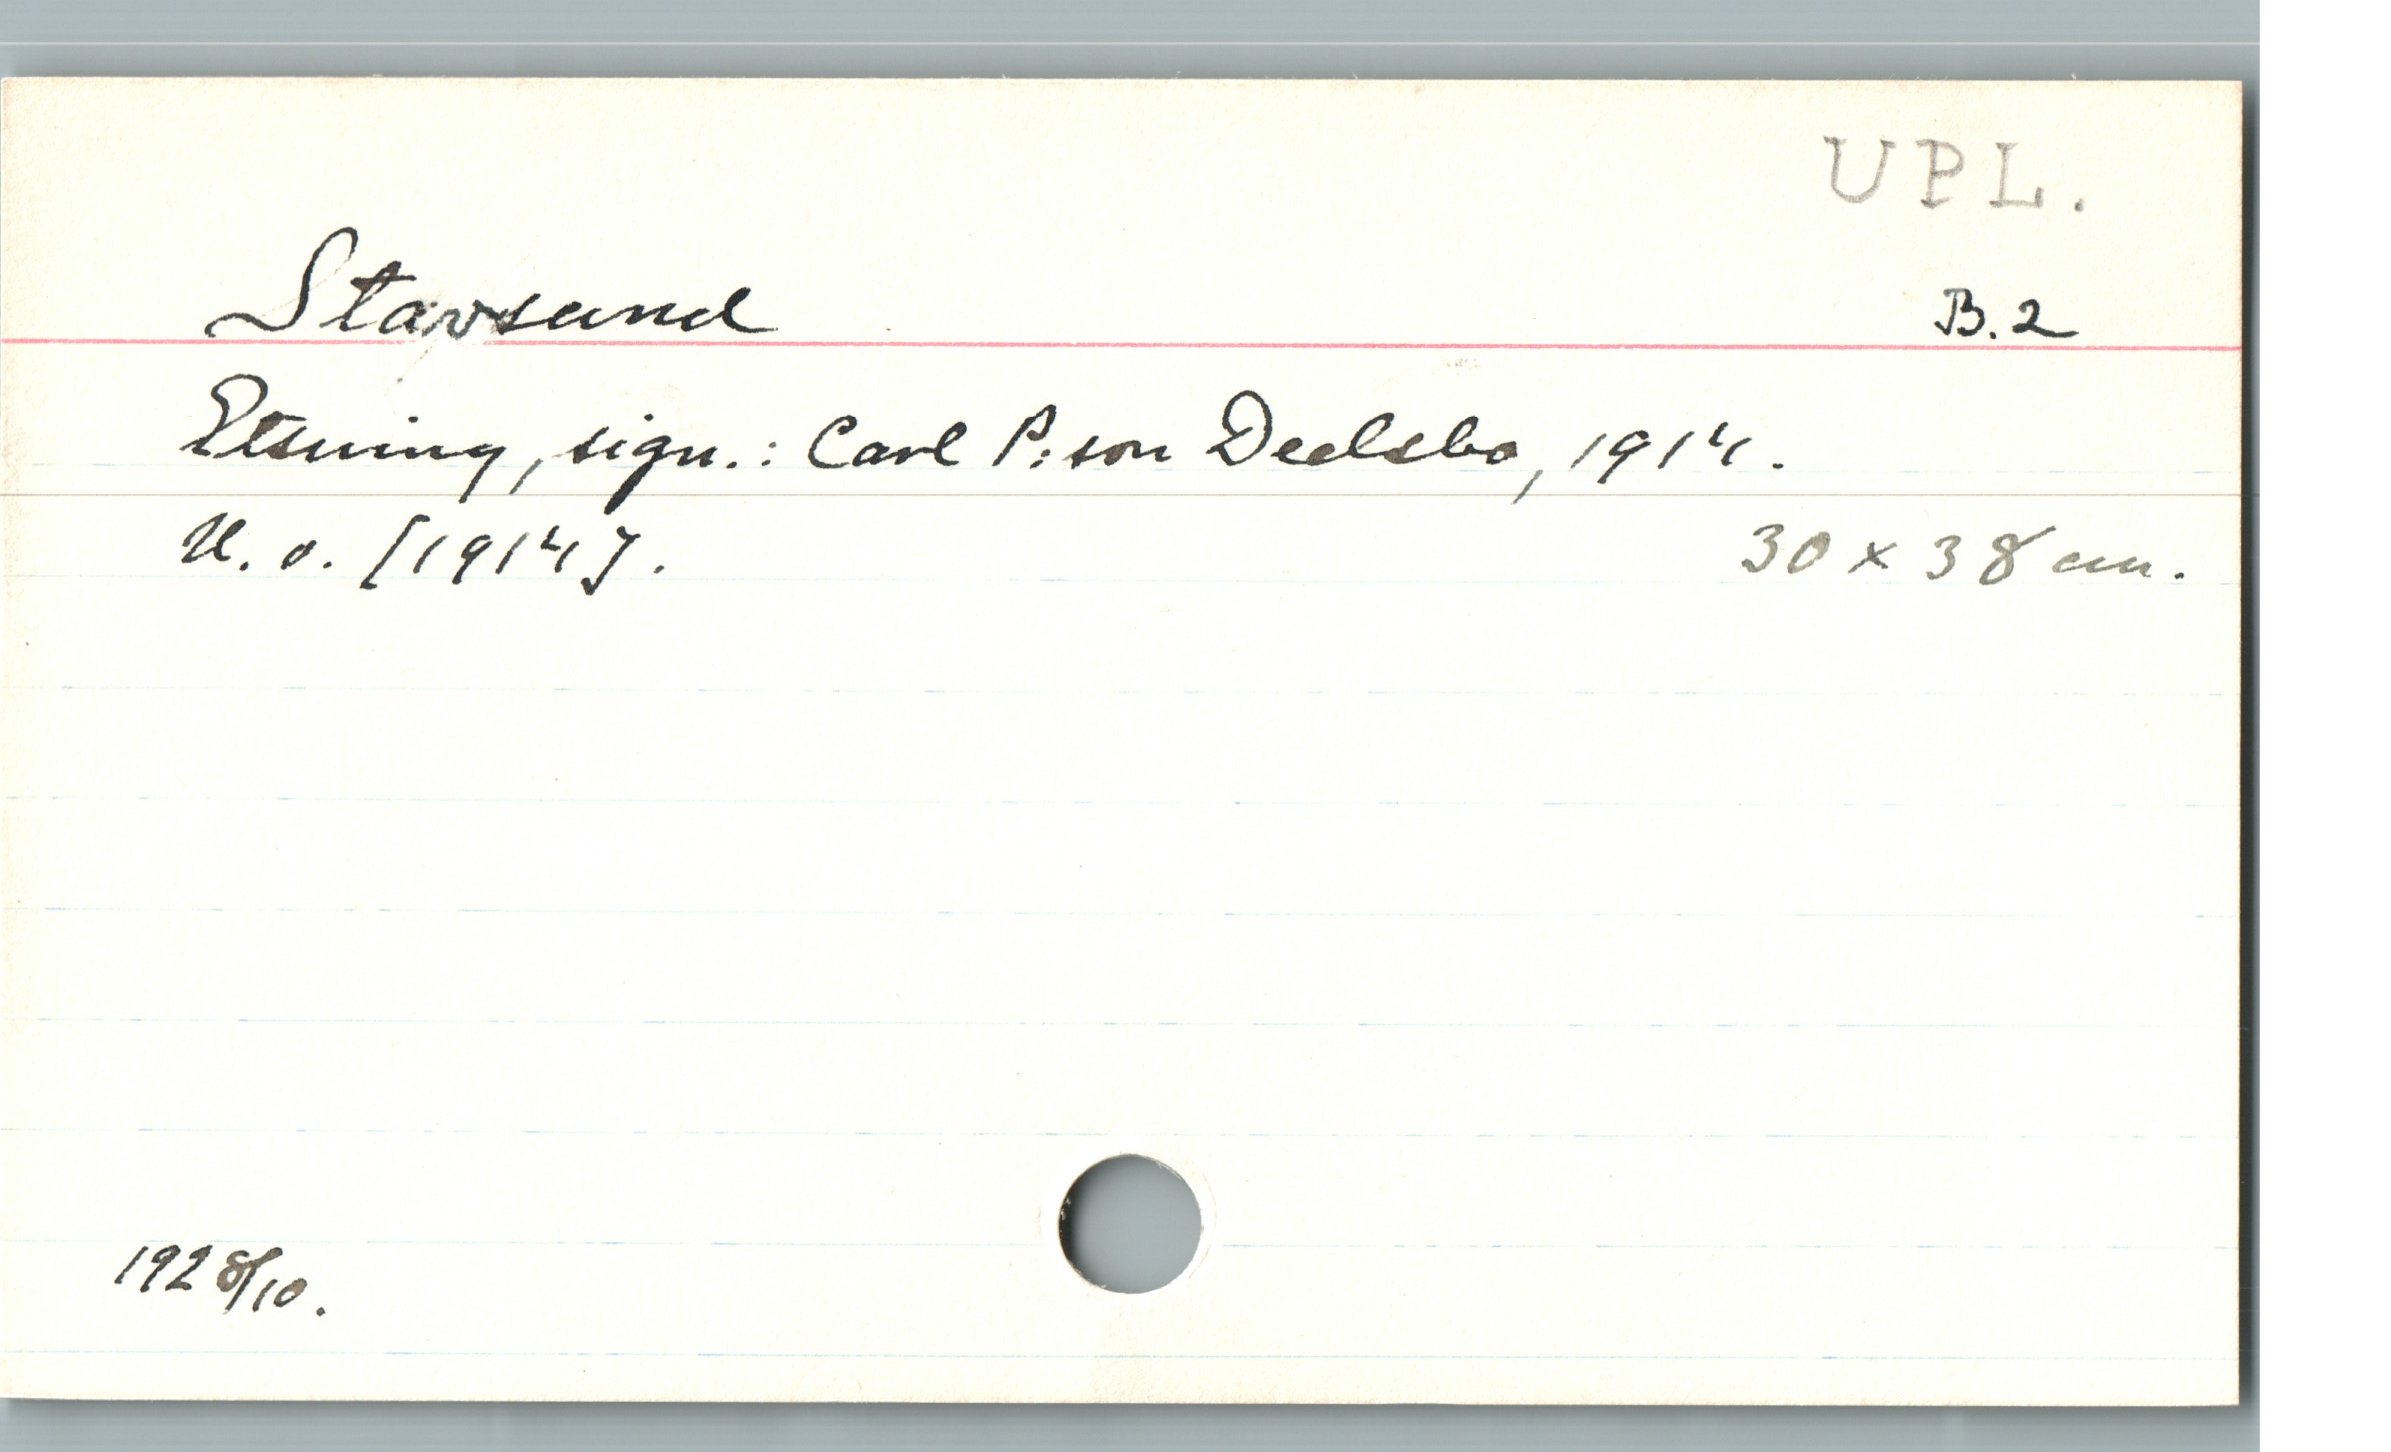 UPL.
Stavsund
B.2
Etsning, sign.: Carl P:son Deelsbo, 1914.
U. o. [1914].
30 x 38 cm.
192 8/10.